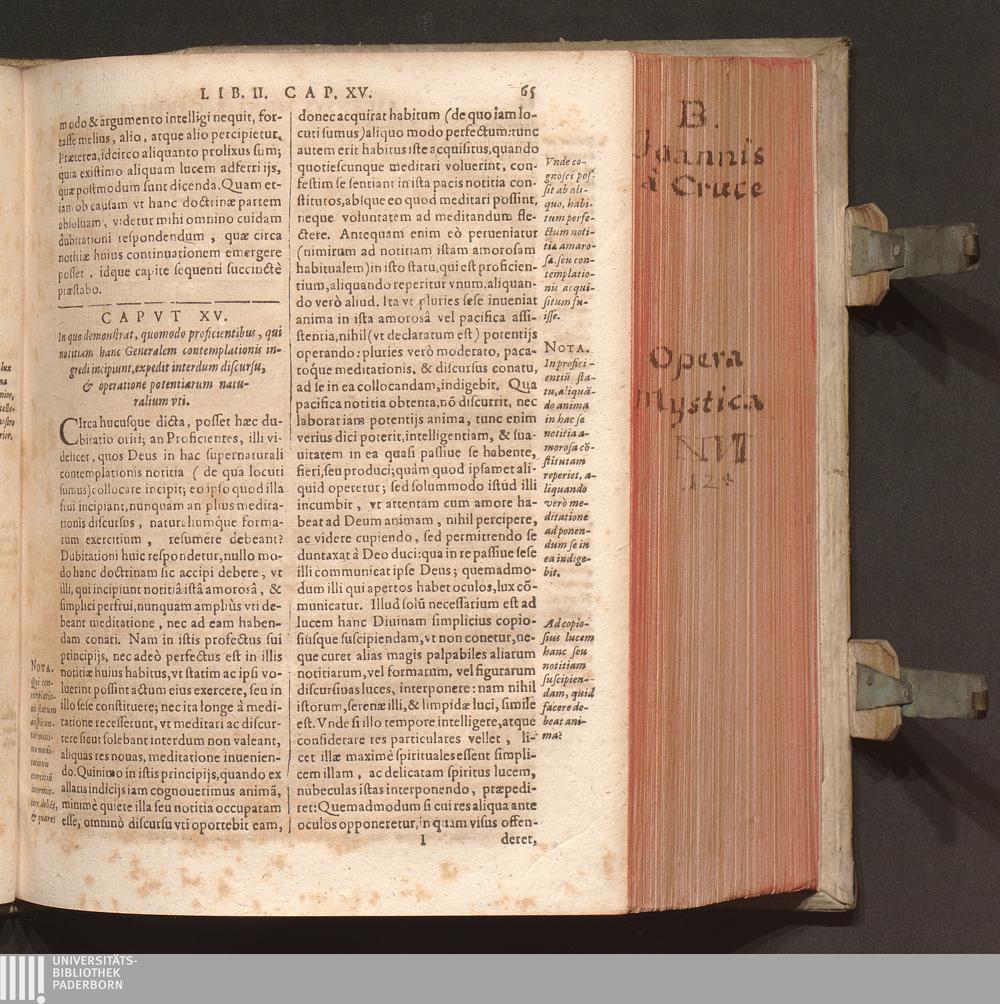 LIB. II. CAP. XV. 65
modo & argumento intelligi nequit, for-
tasse melius, alio, atque alio percipietur.
Præterea, idcirco aliquanto prolixus sum;
quia existimo aliquam lucem adferri ijs,
quæ postmodum sunt dicenda. Quam et-
iam ob causam vt hanc doctrinæ partem
absoluam, videtur mihi omnino cuidam
dubitationi respondendum, quæ circa
notitiæ huius continuationem emergere
posset, idque capite sequenti succinctè
præstabo.
CAPVT XV.
In quo demonstrat, quomodo proficientibus, qui
notitiam hanc Generalem contemplationis in-
gredi incipiunt, expedit interdum discursu,
& operatione potentiarum natu-
ralium vti.
CIrca hucusque dicta, posset hæc du-
bitatio oriri; an Proficientes, illi vi-
delicet, quos Deus in hac supernaturali
contemplationis notitia (de qua locuti
sumus) collocare incipit; eo ipso quod illa
frui incipiant, nunquam an plius medita-
tionis discursus, naturaliumque forma-
rum exercitium, resumere debeant?
Dubitationi huic respondetur, nullo mo-
do hanc doctrinam sic accipi debere, vt
illi, qui incipiunt notitiâ istâ amorosâ, &
simplici perfrui, nunquam ampliùs vti de-
beant meditatione, nec ad eam haben-
dam conari. Nam in istis profectus sui
principijs, nec adeò perfectus est in illis
notitiæ huius habitus, vt statim ac ipsi vo-
luerint possint actum eius exercere, seu in
illo sese constituere; nec ita longe â medi-
tatione recesserunt, vt meditari ac discur-
rere sicut solebant interdum non valeant,
aliquas res nouas, meditatione inuenien-
do. Quinimo in istis principijs, quando ex
allatis indicijs iam cognouerimus animã,
minimè quiete illa seu notitia occupatam
esse, omninò discursu vti oportebit eam,
NOTA.
donec acquirat habitum (de quo iam lo-
cuti sumus) aliquo modo perfectum: tunc
autem erit habitus iste acquisitus, quando
quotiescunque meditari voluerint, con-
festim se sentiant in ista pacis notitia con-
stitutos, absque eo quod meditari possint,
neque voluntatem ad meditandum fle-
ctere. Antequam enim eò perueniatur
(nimirum ad notitiam istam amorosam
habitualem) in isto statu, qui est proficien-
tium, aliquando reperitur vnum, aliquan-
do verò aliud. Ita vt pluries sese inueniat
anima in ista amorosâ vel pacifica assi-
stentia, nihil (vt declaratum est) potentijs
operando: pluries verò moderato, paca-
toque meditationis, & discursus conatu,
ad se in ea collocandam, indigebit. Qua
pacifica notitia obtenta, nõ discurrit, nec
laborat iam potentijs anima, tunc enim
verius dici poterit, intelligentiam, & sua-
uitatem in ea quasi passiue se habente,
fieri, seu produci; quàm quod ipsamet ali-
quid operetur; sed solummodo istud illi
incumbit, vt attentam cum amore ha-
beat ad Deum animam, nihil percipere,
ac videre cupiendo, sed permittendo se
duntaxat à Deo duci: qua in re passiue sese
illi communicat ipse Deus; quemadmo-
dum illi qui apertos habet oculos, lux cõ-
municatur. Illud solũ necessarium est ad
lucem hanc Diuinam simplicius copio-
siusque suscipiendam, vt non conetur, ne-
que curet alias magis palpabiles aliarum
notitiarum, vel formarum, vel figurarum
discursiuas luces, interponere: nam nihil
istorum, serenæ illi, & limpidæ luci, simile
est. Vnde si illo tempore intelligere, atque
considerare res particulares vellet, li-
cet illæ maximè spirituales essent simpli-
cem illam, ac delicatam spiritus lucem,
nubeculas istas interponendo, præpedi-
ret: Quemadmodum si cui res aliqua ante
oculos opponeretur, in quam visus offen-
I deret,
Vnde co-
gnosci pos-
sit ab ali-
quo, habi-
tum perfe-
ctum noti-
tiæ amaro-
sæ, seu con-
templatio-
nis acqui-
situm fu-
isse.
NOTA.
In profici-
entiũ sta-
tu, aliquã-
do anima
in hac se
notitia a-
morosa cõ-
stitutam
reperiet, a-
liquando
verò me-
ditatione
ad ponen-
dum se in
ea indige-
bit.
Ad copio-
sius lucem
hanc seu
notitiam
suscipien-
dam, quid
facere de-
beat ani-
ma?
B.
Joannis
à Cruce
Opera
Mystica
UNIVERSITÄTS-
BIBLIOTHEK
PADERBORN